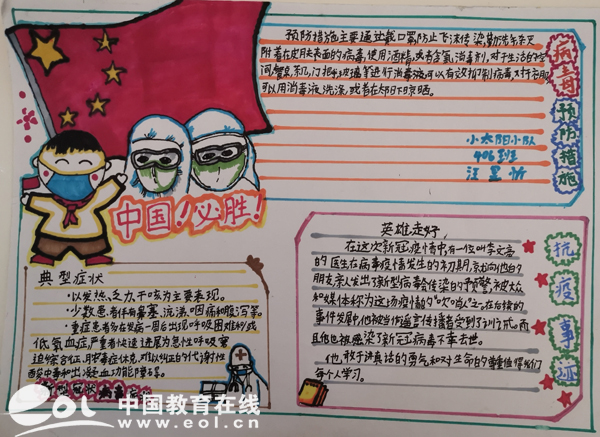 预防措施主要通过戴口罩防止飞沫传染,勤洗手杀灭
附着在皮肤表面的病毒,使用酒精,或者含氯消毒剂,对于生活的空
间
进行消毒液可以有效抑制病毒
可以用消毒液洗涤,或者在烈日下晾晒。
病毒预防措施
小太阳小队
406班
中国!必胜!
典型症状
·以发热、乏力、干咳为主要表现。
·少数患者伴有鼻塞、流涕、咽痛和腹泻等。
·重症患者多在发病一周后出现呼吸困难和或
低氧血症,严重者快速进展为急性呼吸窘
迫综合征、脓毒症休克、难以纠正的代谢性
酸中毒和出凝血功能障碍。
英雄走好,
在这次新冠疫情中有一位叫李文亮
的医生在病毒疫情发生的初期,就向他的
朋友亲人发出了新型病毒会传染的预警,被大众
和媒体称为这场疫情的“吹哨人”之一,在后续的
事件发展中,他被当作谣言传播者受到了训诫,而
且他也被感染了新冠病毒不幸去世。
他,敢于讲真话的勇气和对生命的尊重值得我们
每个人学习。
抗疫事迹
eol 中国教育在线
www.eol.cn